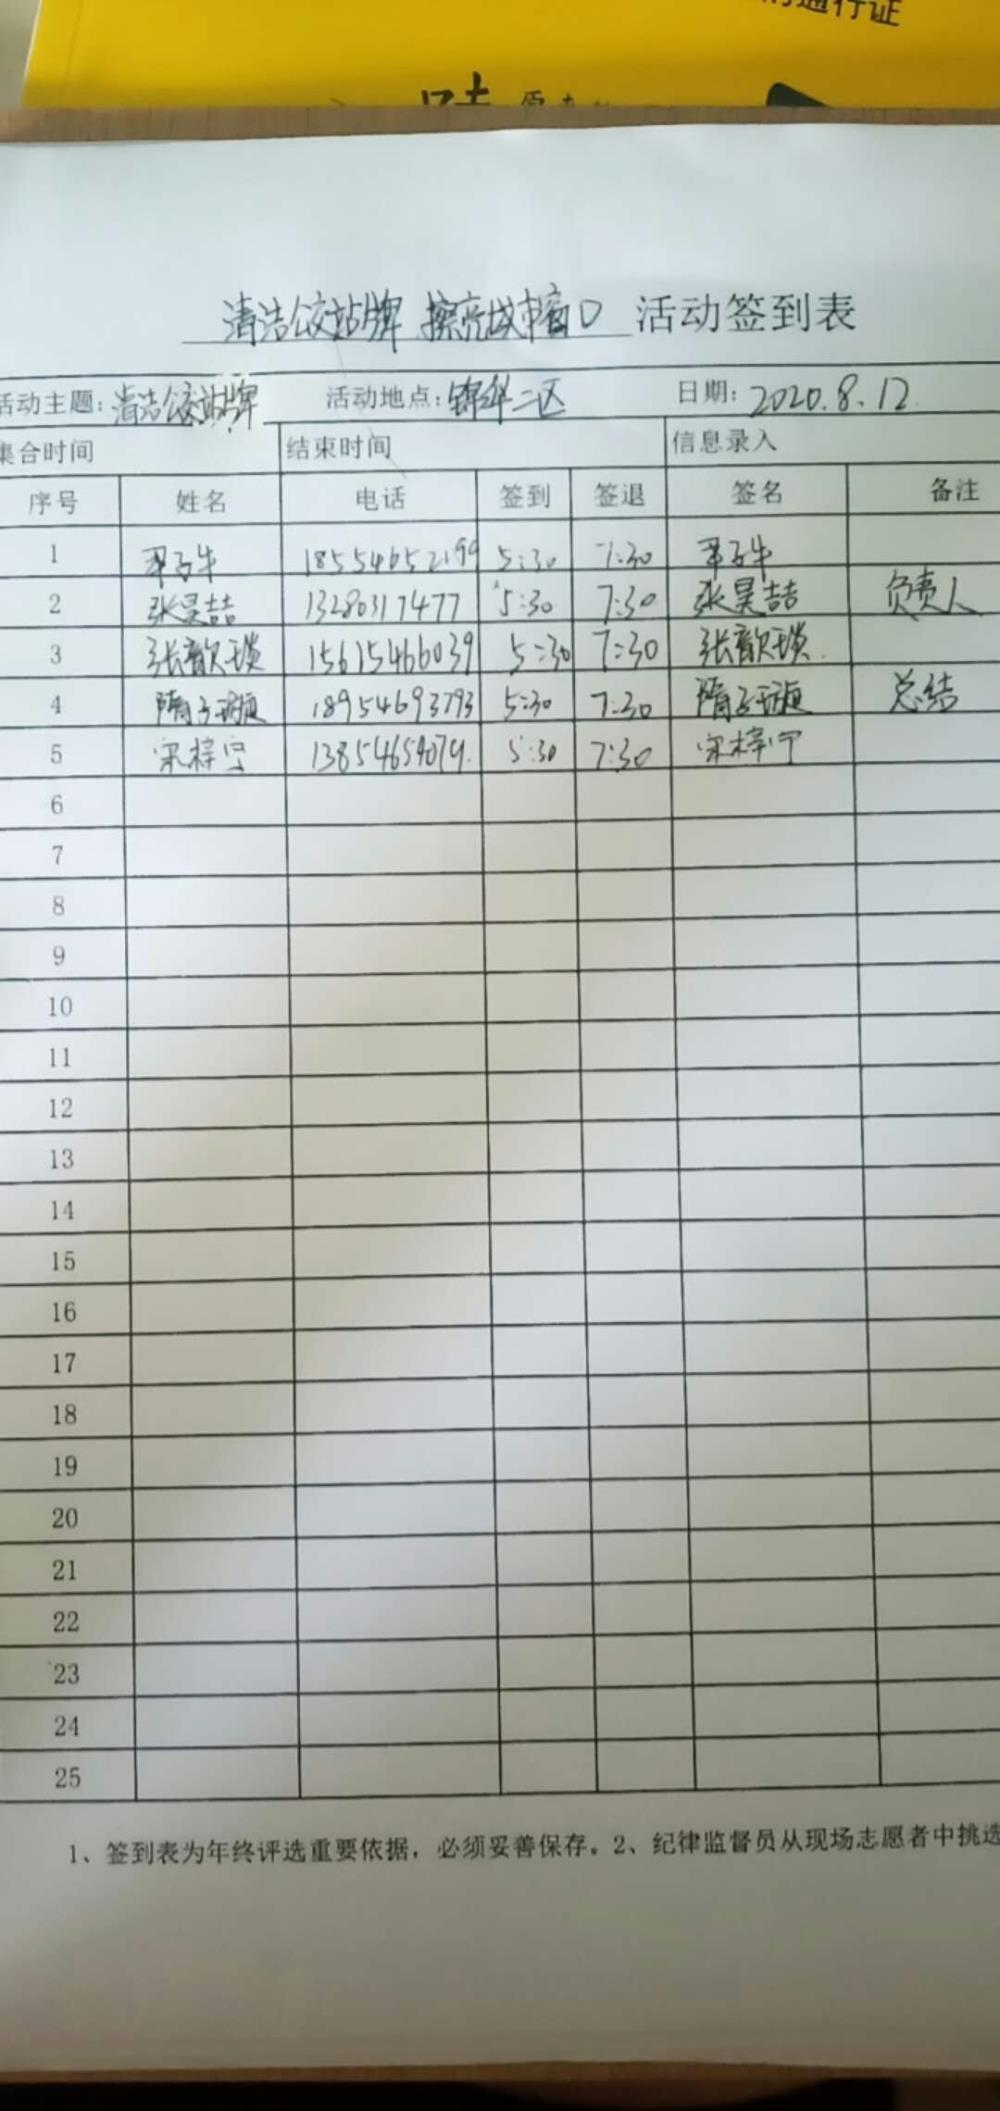 通行证
清洁公交站牌 擦亮城市窗口 活动签到表
活动主题:清洁公交站牌 活动地点:锦华二区 日期:2020.8.12
集合时间 结束时间 信息录入
序号 姓名 电话 签到 签退 签名 备注
1 18554652199 5:30 7:30
2 张昊喆 13280317477 5:30 7:30 张昊喆 负责人
3 张歆瑛 15615466039 5:30 7:30 张歆瑛
4 隋子璇 18954693793 5:30 7:30 隋子璇 总结
5 宋梓宁 13854654079 5:30 7:30 宋梓宁
6
7
8
9
10
11
12
13
14
15
16
17
18
19
20
21
22
23
24
25
1、签到表为年终评选重要依据，必须妥善保存。2、纪律监督员从现场志愿者中挑选